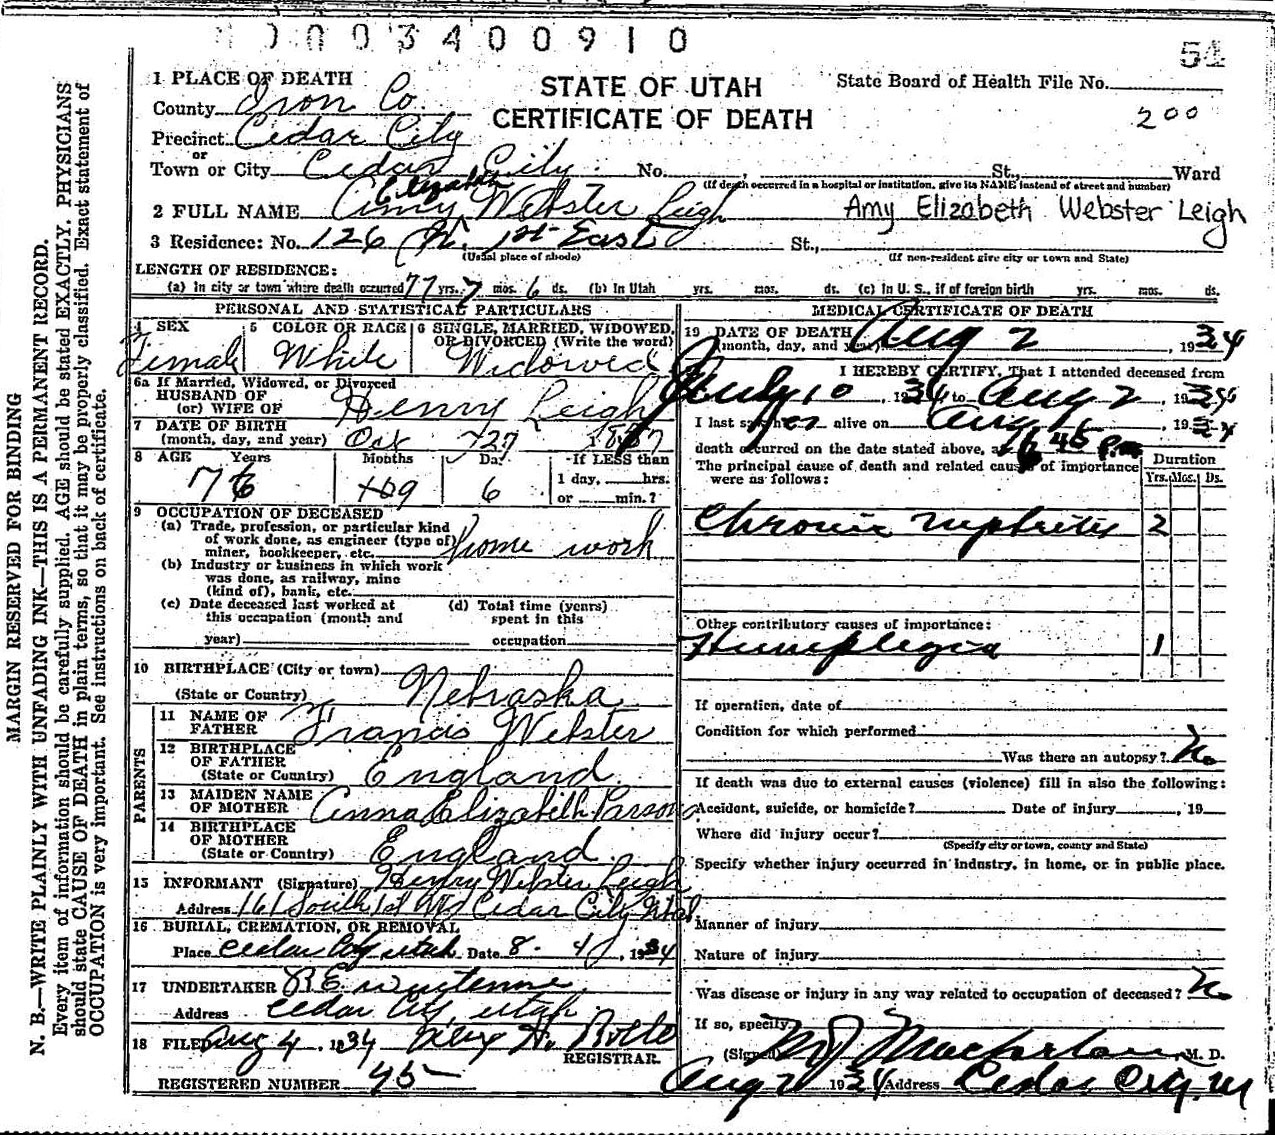 0003400910
51
1 PLACE OF DEATH
STATE OF UTAH
CERTIFICATE OF DEATH
State Board of Health File No.
200
County Iron Co.
Precinct Cedar City
or
Town or City Cedar City No. , St., Ward
(If death occurred in a hospital or institution, give its NAME instead of street and number)
Elizabeth
2 FULL NAME Amy Webster Leigh Amy Elizabeth Webster Leigh
3 Residence: No. 126 N. 1st East St.,
(Usual place of abode) (If non-resident give city or town and State)
LENGTH OF RESIDENCE:
(a) In city or town where death occurred 77 yrs. 7 mos. 6 ds. (b) In Utah yrs. mos. ds. (c) In U. S., if of foreign birth yrs. mos. ds.
PERSONAL AND STATISTICAL PARTICULARS
4 SEX
Female
5 COLOR OR RACE
White
6 SINGLE, MARRIED, WIDOWED, OR DIVORCED (Write the word)
Widowed
6a If Married, Widowed, or Divorced
HUSBAND OF
(or) WIFE OF Henry Leigh
7 DATE OF BIRTH
(month, day, and year) Oct 27 1857
8 AGE Years Months Da. If LESS than
76 9 6 1 day, hrs.
or min.?
9 OCCUPATION OF DECEASED
(a) Trade, profession, or particular kind
of work done, as engineer (type of)
miner, bookkeeper, etc. home work
(b) Industry or business in which work
was done, as railway, mine
(kind of), bank, etc.
(c) Date deceased last worked at
this occupation (month and
year)
(d) Total time (years)
spent in this
occupation
10 BIRTHPLACE (City or town)
(State or Country) Nebraska
PARENTS
11 NAME OF
FATHER Francis Webster
12 BIRTHPLACE
OF FATHER
(State or Country) England
13 MAIDEN NAME
OF MOTHER Anna Elizabeth Parsons
14 BIRTHPLACE
OF MOTHER
(State or Country) England
15 INFORMANT (Signature) Henry Webster Leigh
Address 161 South 1st Wd Cedar City Utah
16 BURIAL, CREMATION, OR REMOVAL
Place Cedar City Utah Date 8 - 4, 1934
17 UNDERTAKER
Address Cedar City, Utah
18 FILED Aug 4, 1934 Alex H. Rollo
REGISTRAR.
REGISTERED NUMBER 45
MEDICAL CERTIFICATE OF DEATH
19 DATE OF DEATH
(month, day, and year) Aug 2, 1934
I HEREBY CERTIFY, That I attended deceased from
July 10, 1934 to Aug 2, 1934
I last saw her alive on Aug, 1934
death occurred on the date stated above, at 45 p.m.
The principal cause of death and related causes of importance
were as follows:
Duration
Yrs. Mos. Ds.
Chronic nephritis 2
Other contributory causes of importance:
Hemiplegia 1
If operation, date of
Condition for which performed
Was there an autopsy? No
If death was due to external causes (violence) fill in also the following:
Accident, suicide, or homicide? Date of injury, 19
Where did injury occur?
(Specify city or town, county and State)
Specify whether injury occurred in industry, in home, or in public place.
Manner of injury
Nature of injury
Was disease or injury in any way related to occupation of deceased? No
If so, specify
(Signed) M J Macfarlane, M. D.
Aug 2 1934 Address Cedar City, U
MARGIN RESERVED FOR BINDING
N. B.—WRITE PLAINLY WITH UNFADING INK—THIS IS A PERMANENT RECORD.
Every item of information should be carefully supplied. AGE should be stated EXACTLY. PHYSICIANS
should state CAUSE OF DEATH in plain terms, so that it may be properly classified. Exact statement of
OCCUPATION is very important. See instructions on back of certificate.